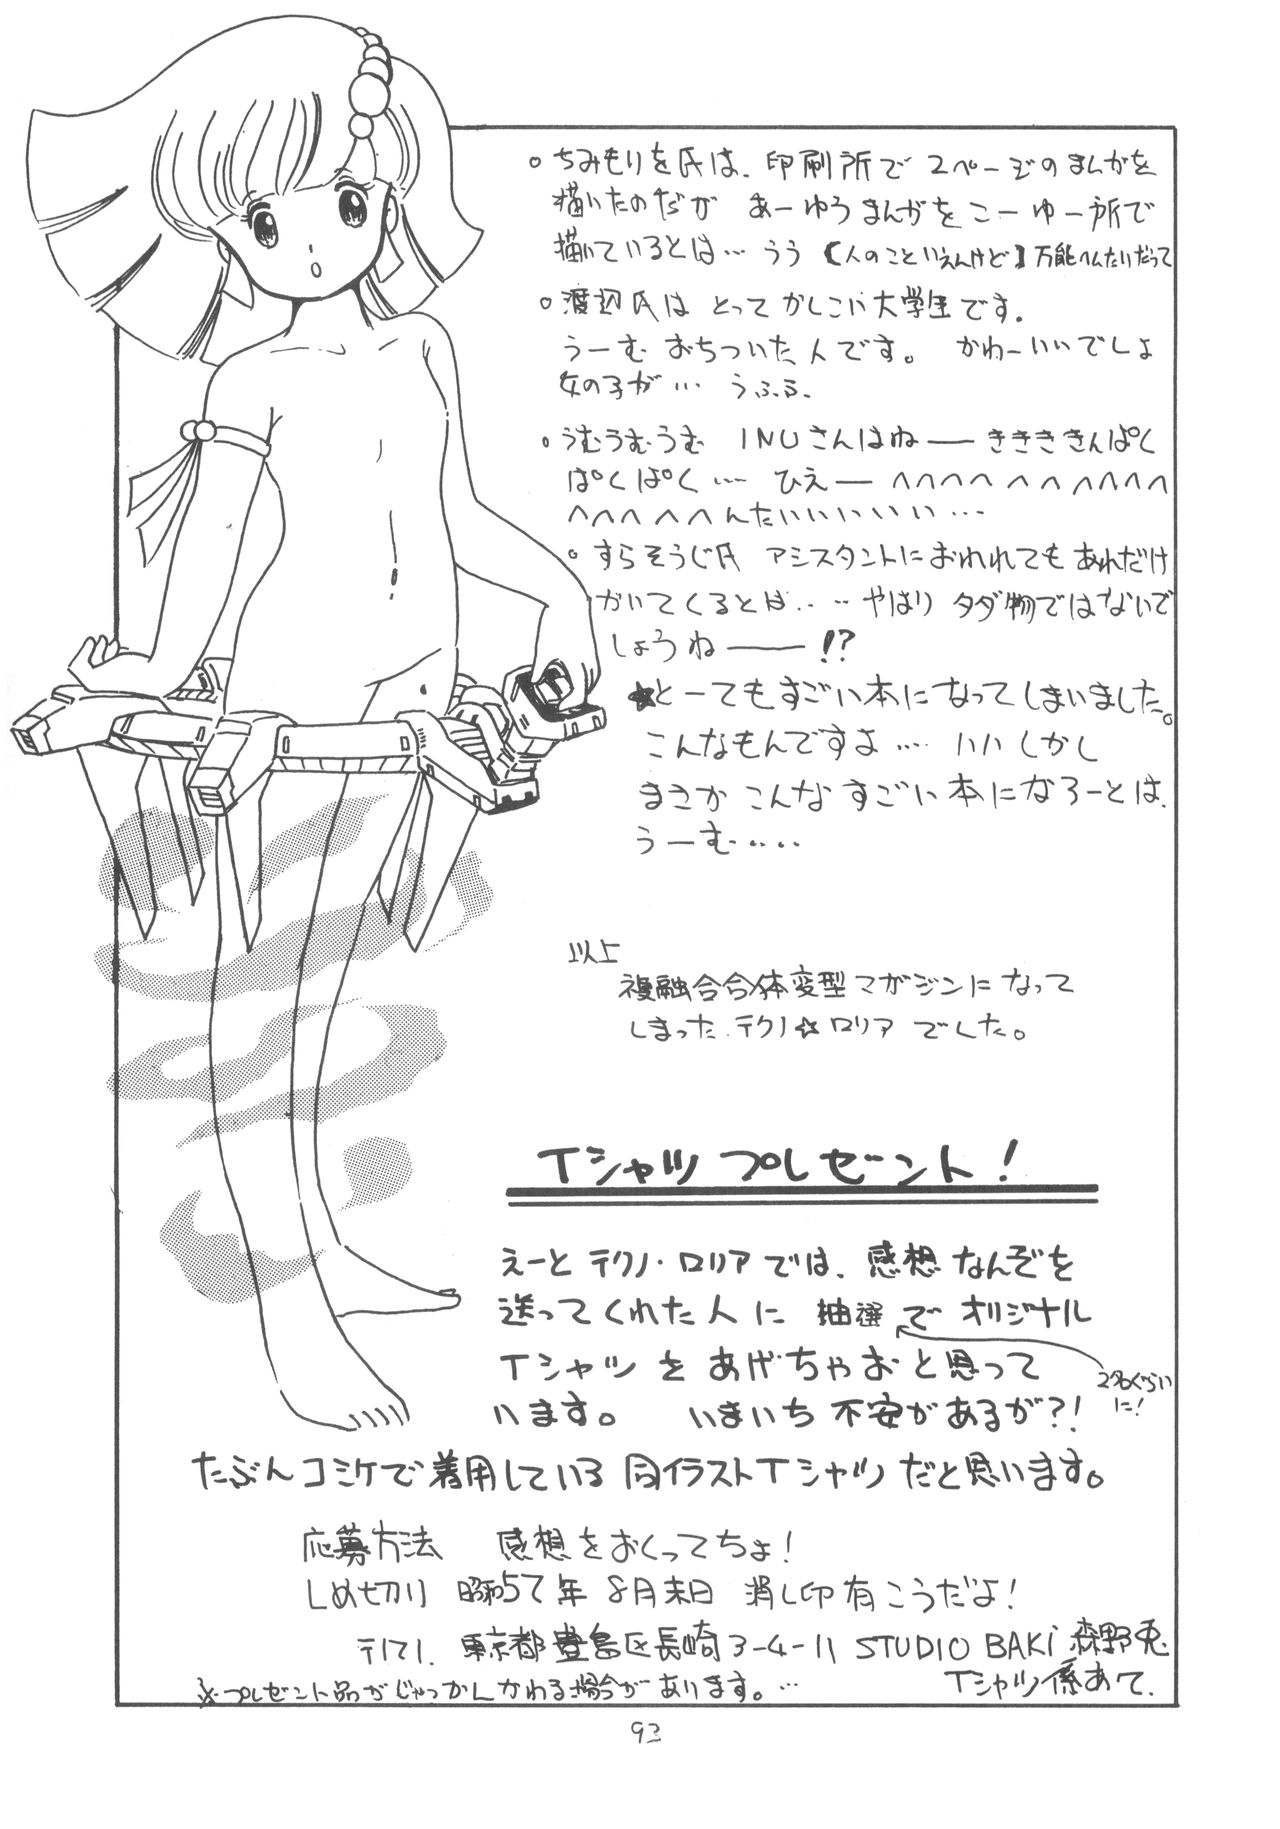 ちみもりを氏は、印刷所で2ページのまんがを
描いたのだが あーゆうまんがをこーゆー所で
描いているとは… うう【人のこといえんけど】万能へんたいだって
渡辺氏は とってかしこい大学生です。
うーむ おちついた人です。 かわーいいでしょ
女の子が… うふる.
うむうむうむ INUさんはねー きききききんぱく
ぱくぱく… ひえー へへへへへへへへへへへ
へへへへへへんたいいいいいい…
すらそうじ氏 アシスタントにおわれてもあれだけ
かいてくるとは‥‥やはり タダ物ではないで
しょうねー!?
★とーてもすごい本になってしまいました。
こんなもんですよ…. いいしかし
まさかこんなすごい本になろーとは、
うーむ‥‥
以上
複融合合体変型マガジンになって
しまった.テクノ☆ロリア でした。
Tシャツ プレゼント!
えーと テクノ・ロリアでは、感想なんぞを
送ってくれた人に 抽選で オリジナル
Tシャツをあげちゃおと思って
2名ぐらい
に!
います。 いまいち不安があるが?!
たぶんコミケで着用している同イラストTシャツだと思います。
応募方法 感想をおくってちょ!
しめ切り 昭和57年 8月末日 消し印有こうだよ!
〒171. 東京都豊島区長崎3-4-11 STUDIO BAKI 森野兎
Tシャツ係あて.
※プレゼント品がじゃっかんかわる場合があります。…
93